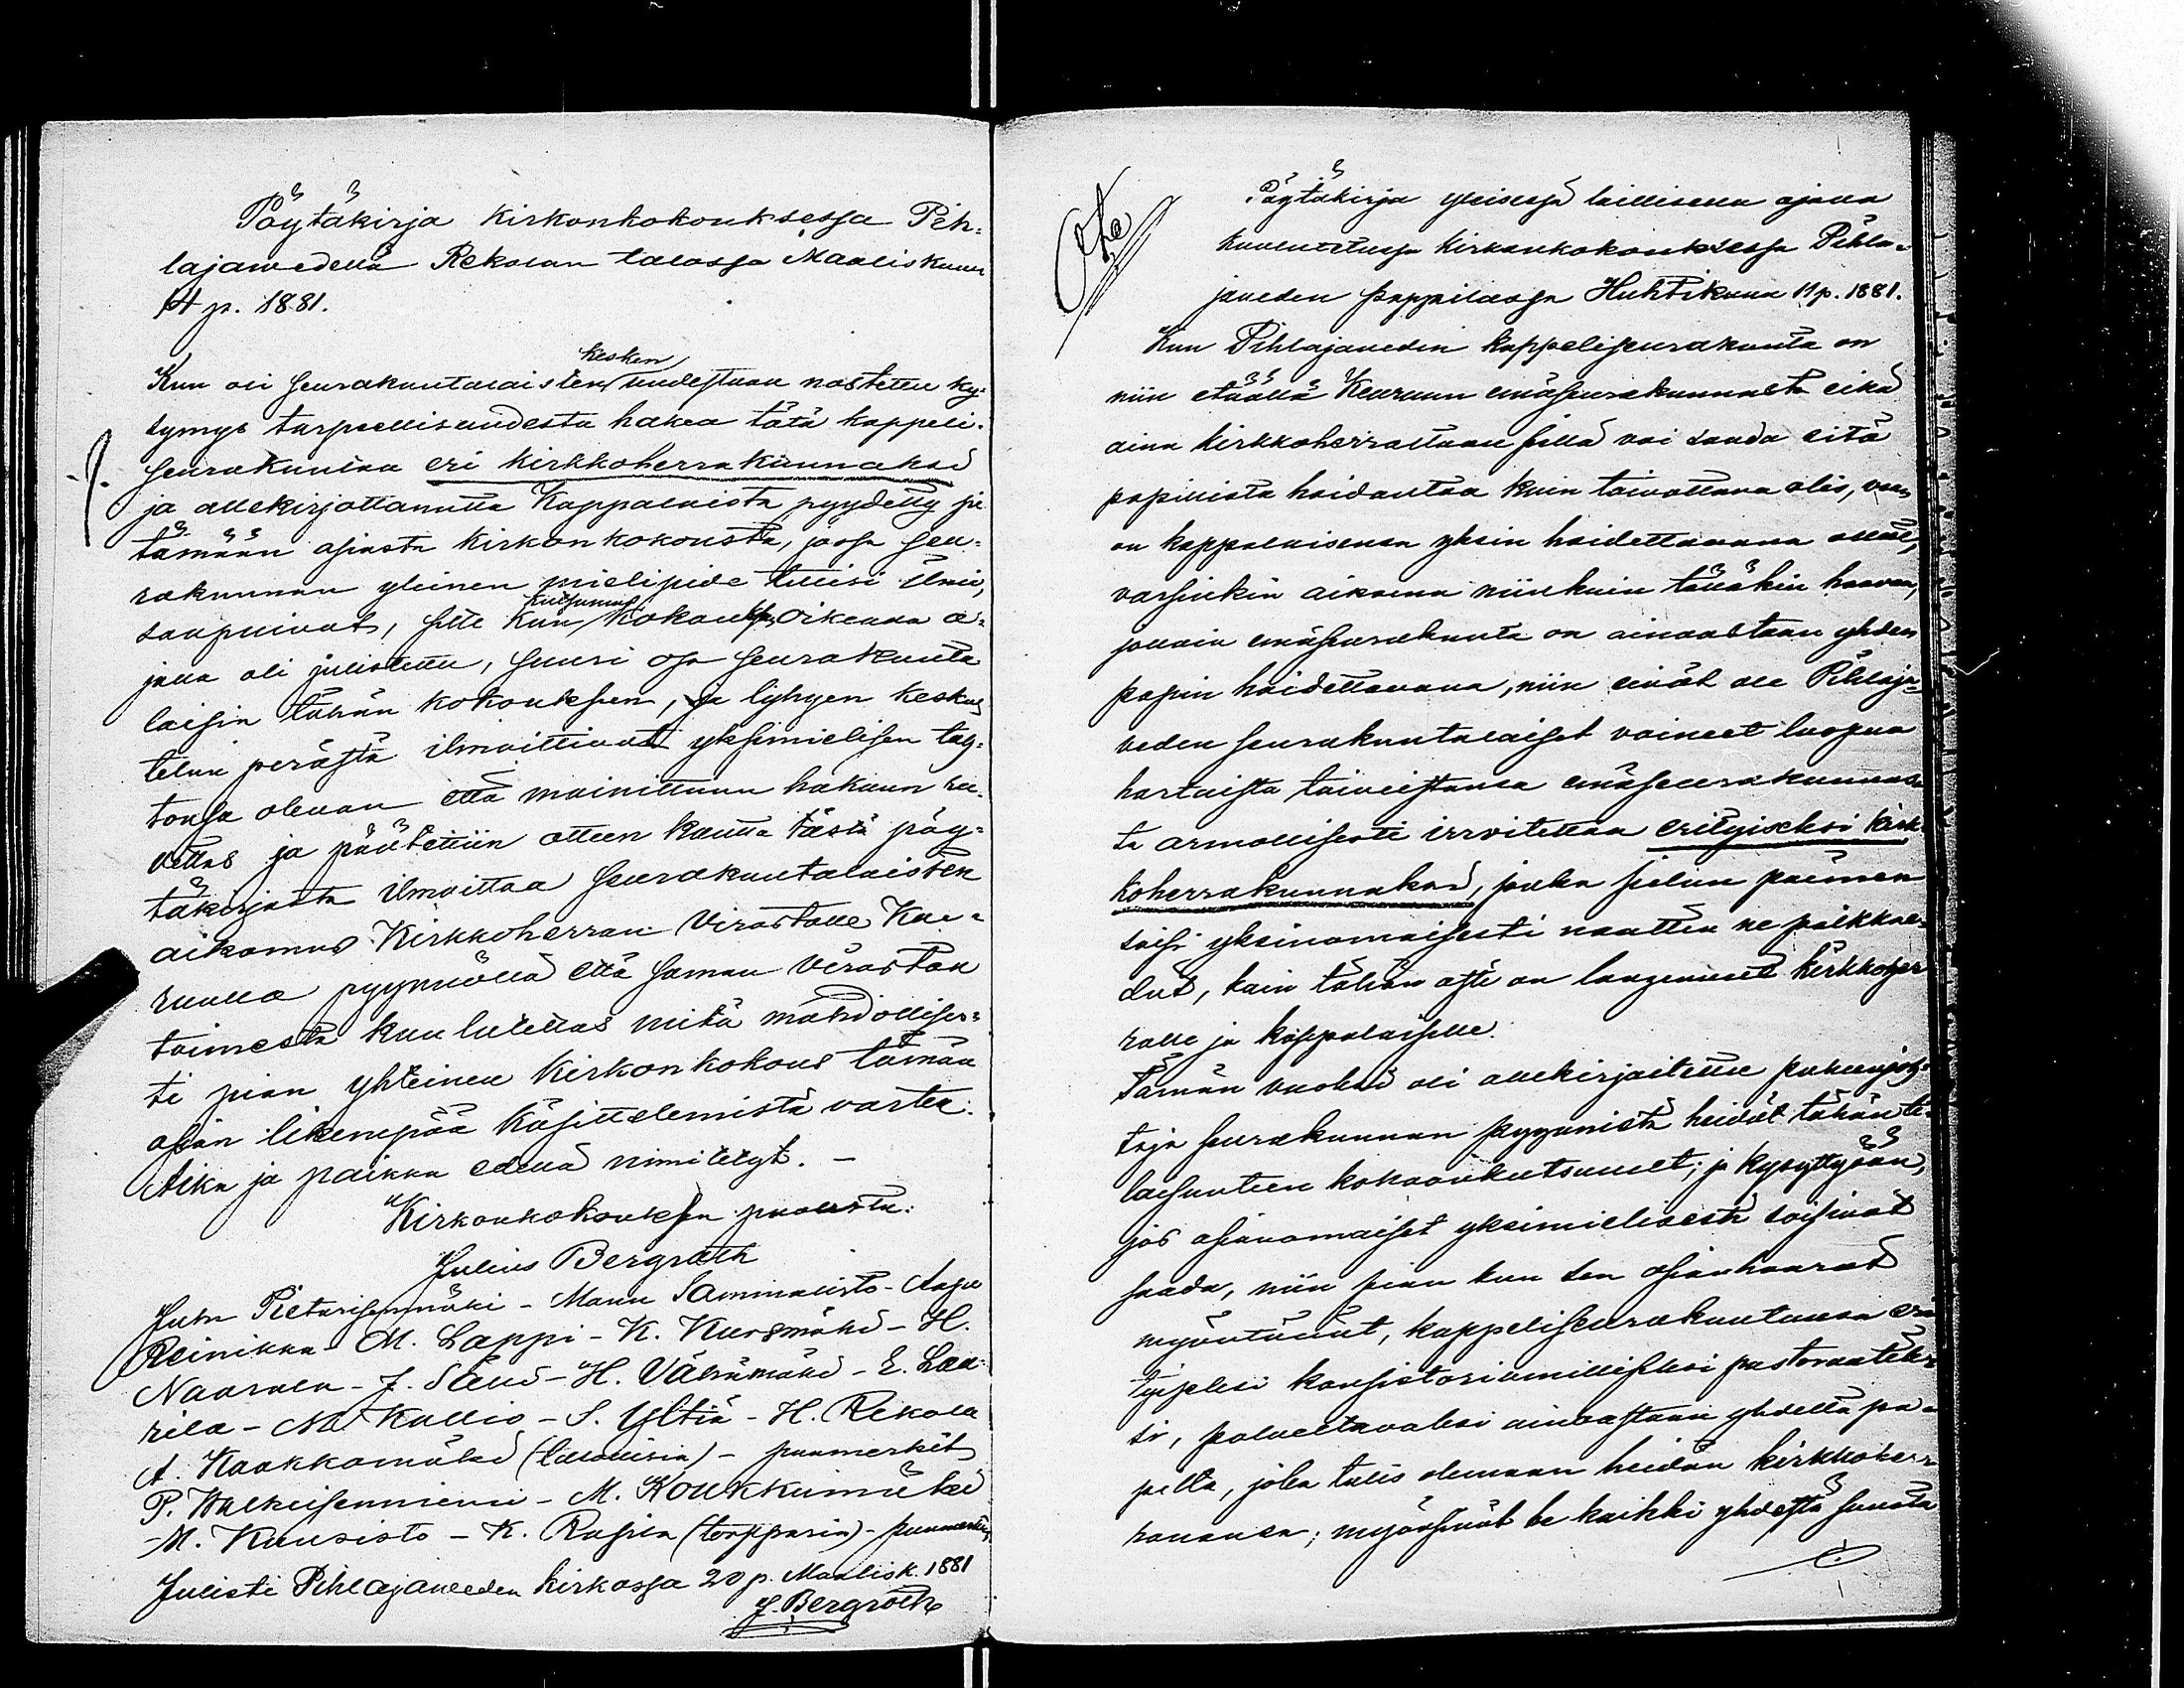 Pöytäkirja kirkonkokouksessa Pih-
lajawedellä Rekolan talossa Maaliskuun
14 p. 1881.
kesken
Kun oli seurakuntalaisten uudestaan nostettu ky-
symys tarpeellisuudesta hakea tätä kappeli-
seurakuntaa eri kirkkoherrakunnaksi
ja allekirjottanutta Kappalaista pyydetty pi
tämään asiasta kirkonkokousta, jossa seu-
rakunnan yleinen mielipide tulisi ilmi,
saapuivat, sitte kun kutsumus kokoukseen oikeana a-
jalla oli julistettu, suuri osa seurakunta
laisia tähän kokoukseen, ja lyhyen keskus
telun perästä ilmoittivat yksimielisen tah-
tonsa olevan että mainittuun hakuun ru-
vettas ja päätettiin otteen kautta tästä pöy-
täkirjasta ilmoittaa seurakuntalaisten
aikomus Kirkkoherran Virastolle Keu-
ruulla pyynnöllä että saman Viraston
toimesta kuulutettas mitä mahdollises-
ti pian yhteinen Kirkonkokous tämän
asian likempää käsittelemistä varten.
Aika ja paikka edellä nimitetyt. -
Kirkonkokouksen puolesta:
Julius Bergroth
Juha Pietarisenmäki - Manu Sammalisto - Aapo
Reinikka - M. Lappi - K. Kursmäki - H.
Naarala - J. Ståhl - H. Vähämäki - E. Laa-
rila - M. Kallio - S. Yltiä - H. Rekola
A. Kaakkomäki (talollisia) - puumerkit
P. Valkeisenniemi - M. Koukkumäki
M. Kuusisto - K. Rasila (torpparia) - puumerkit
Julisti Pihlajaweden kirkossa 20 p. Maalisk. 1881
J. Bergroth
Ote
Pöytäkirja yleisessä laillisella ajalla
kuulutetussa kirkonkokouksessa Pihla-
jaweden pappilassa Huhtikuun 11 p. 1881.
Kun Pihlajaveden kappeliseurakunta on
niin etäällä Keuruun emäseurakunnasta eikä
aina kirkkoherraltaan sillä voi saada sitä
papillista hoidantaa kuin toivottava olis, vaan
on kappalaisensa yksin hoidettavana ollut,
varsinkin aikoina niinkuin tätäkin haavaa,
jolloin emäseurakunta on ainoastaan yhden
papin hoidettavana, niin eivät ole Pihlaja-
veden seurakuntalaiset voineet luopua
hartaista toiveistansa emäseurakunnas
ta armollisesti irroitettaa erityiseksi kirk
koherrakunnaksi, jonka sielun paimen
saisi yksinomaisesti nauttia ne palkkae-
dut, kuin tähän asti on langennut kirkkoher
ralle ja kappalaiselle.
Tämän vuoksi oli allekirjoitettu puheenjoh-
taja seurakunnan pyynnistä heidät tähän ti-
laisuuteen kokoonkutsunut; ja kysyttyään,
jos asianomaiset yksimielisesti soisivat
saada, niin pian kun sen asianhaarat
myöntäävät, kappeliseurakuntansa eri
tyiseksi konsistoriumilliseksi pastoraatik-
si, palveltavaksi ainoastaan yhdeltä pa-
pilta, joka tulis olemaan heidän kirkkoher-
ranansa; myönsivät he kaikki yhdestä suusta